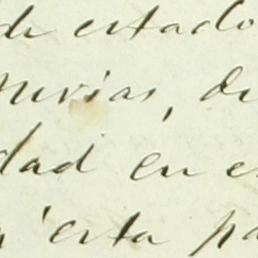 de estado
nuvias, de
dad en e
esta pa